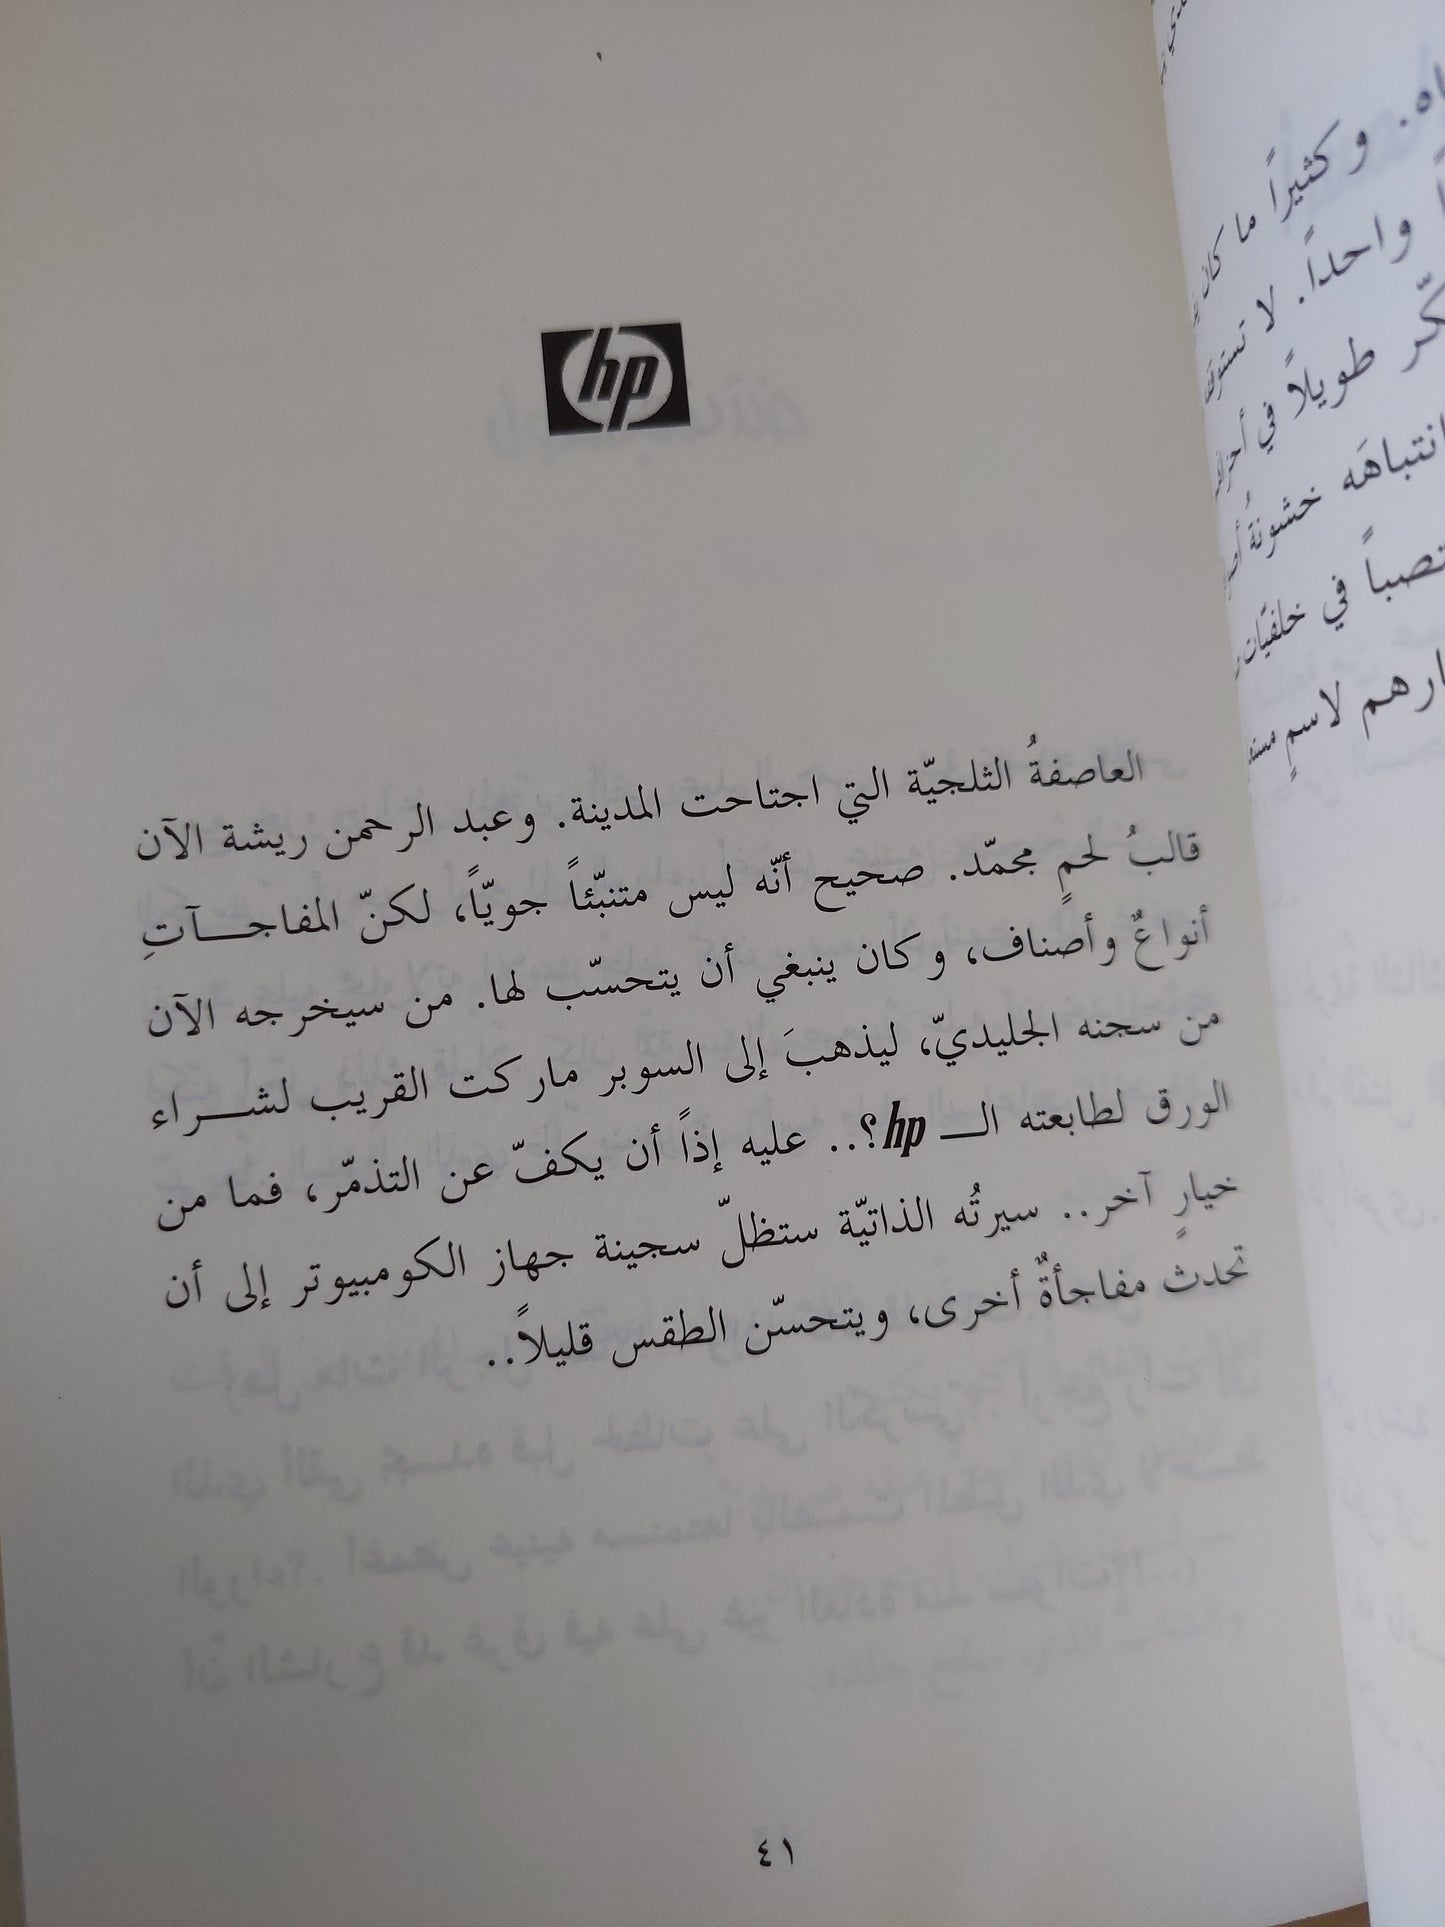 hp
العاصفةُ الثلجيّة التي اجتاحت المدينة. وعبد الرحمن ريشة الآن
قالبُ لحمٍ مجمّد. صحيح أنّه ليس متنبّئاً جويّاً، لكنّ المفاجـــآتِ
أنواعٌ وأصناف، وكان ينبغي أن يتحسّب لها. من سيخرجه الآن
من سجنه الجليديّ، ليذهبَ إلى السوبر ماركت القريب لشـــراء
الورق لطابعته الـــ hp؟.. عليه إذاً أن يكفّ عن التذمّر، فما من
خيارٍ آخر.. سيرتُه الذاتيّة ستظلّ سجينة جهاز الكومبيوتر إلى أن
تحدث مفاجأةٌ أخرى، ويتحسّن الطقس قليلاً..
٤١
وكثيراً ما كان
واحداً. لا
طويلاً في
انتباهَه خشونةُ
في
لاسمٍ